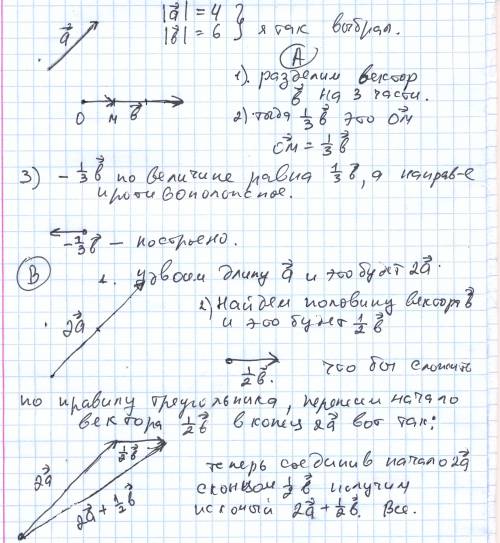 a⃗
|a⃗| = 4
|b⃗| = 6 } я так выбрал.
A
1). разделим вектор
b⃗ на 3 части.
O M b⃗
2) тогда 1/3 b⃗ это OM⃗
OM⃗ = 1/3 b⃗
3) - 1/3 b⃗ по величине равна 1/3 b⃗, а направ-е
противоположное.
- 1/3 b⃗ – построено.
B
1. удвоим длину a⃗ и это будет 2a⃗.
2) Найдем половину вектора b⃗
и это будет 1/2 b⃗
2a⃗
1/2 b⃗.
что бы сложить
по правилу треугольника, перенесем начало
вектора 1/2 b⃗ в конец 2a⃗ вот так:
2a⃗
1/2 b⃗
2a⃗ + 1/2 b⃗
теперь соединив начало 2a⃗
с концом 1/2 b⃗ получим
искомый 2a⃗ + 1/2 b⃗. Все.